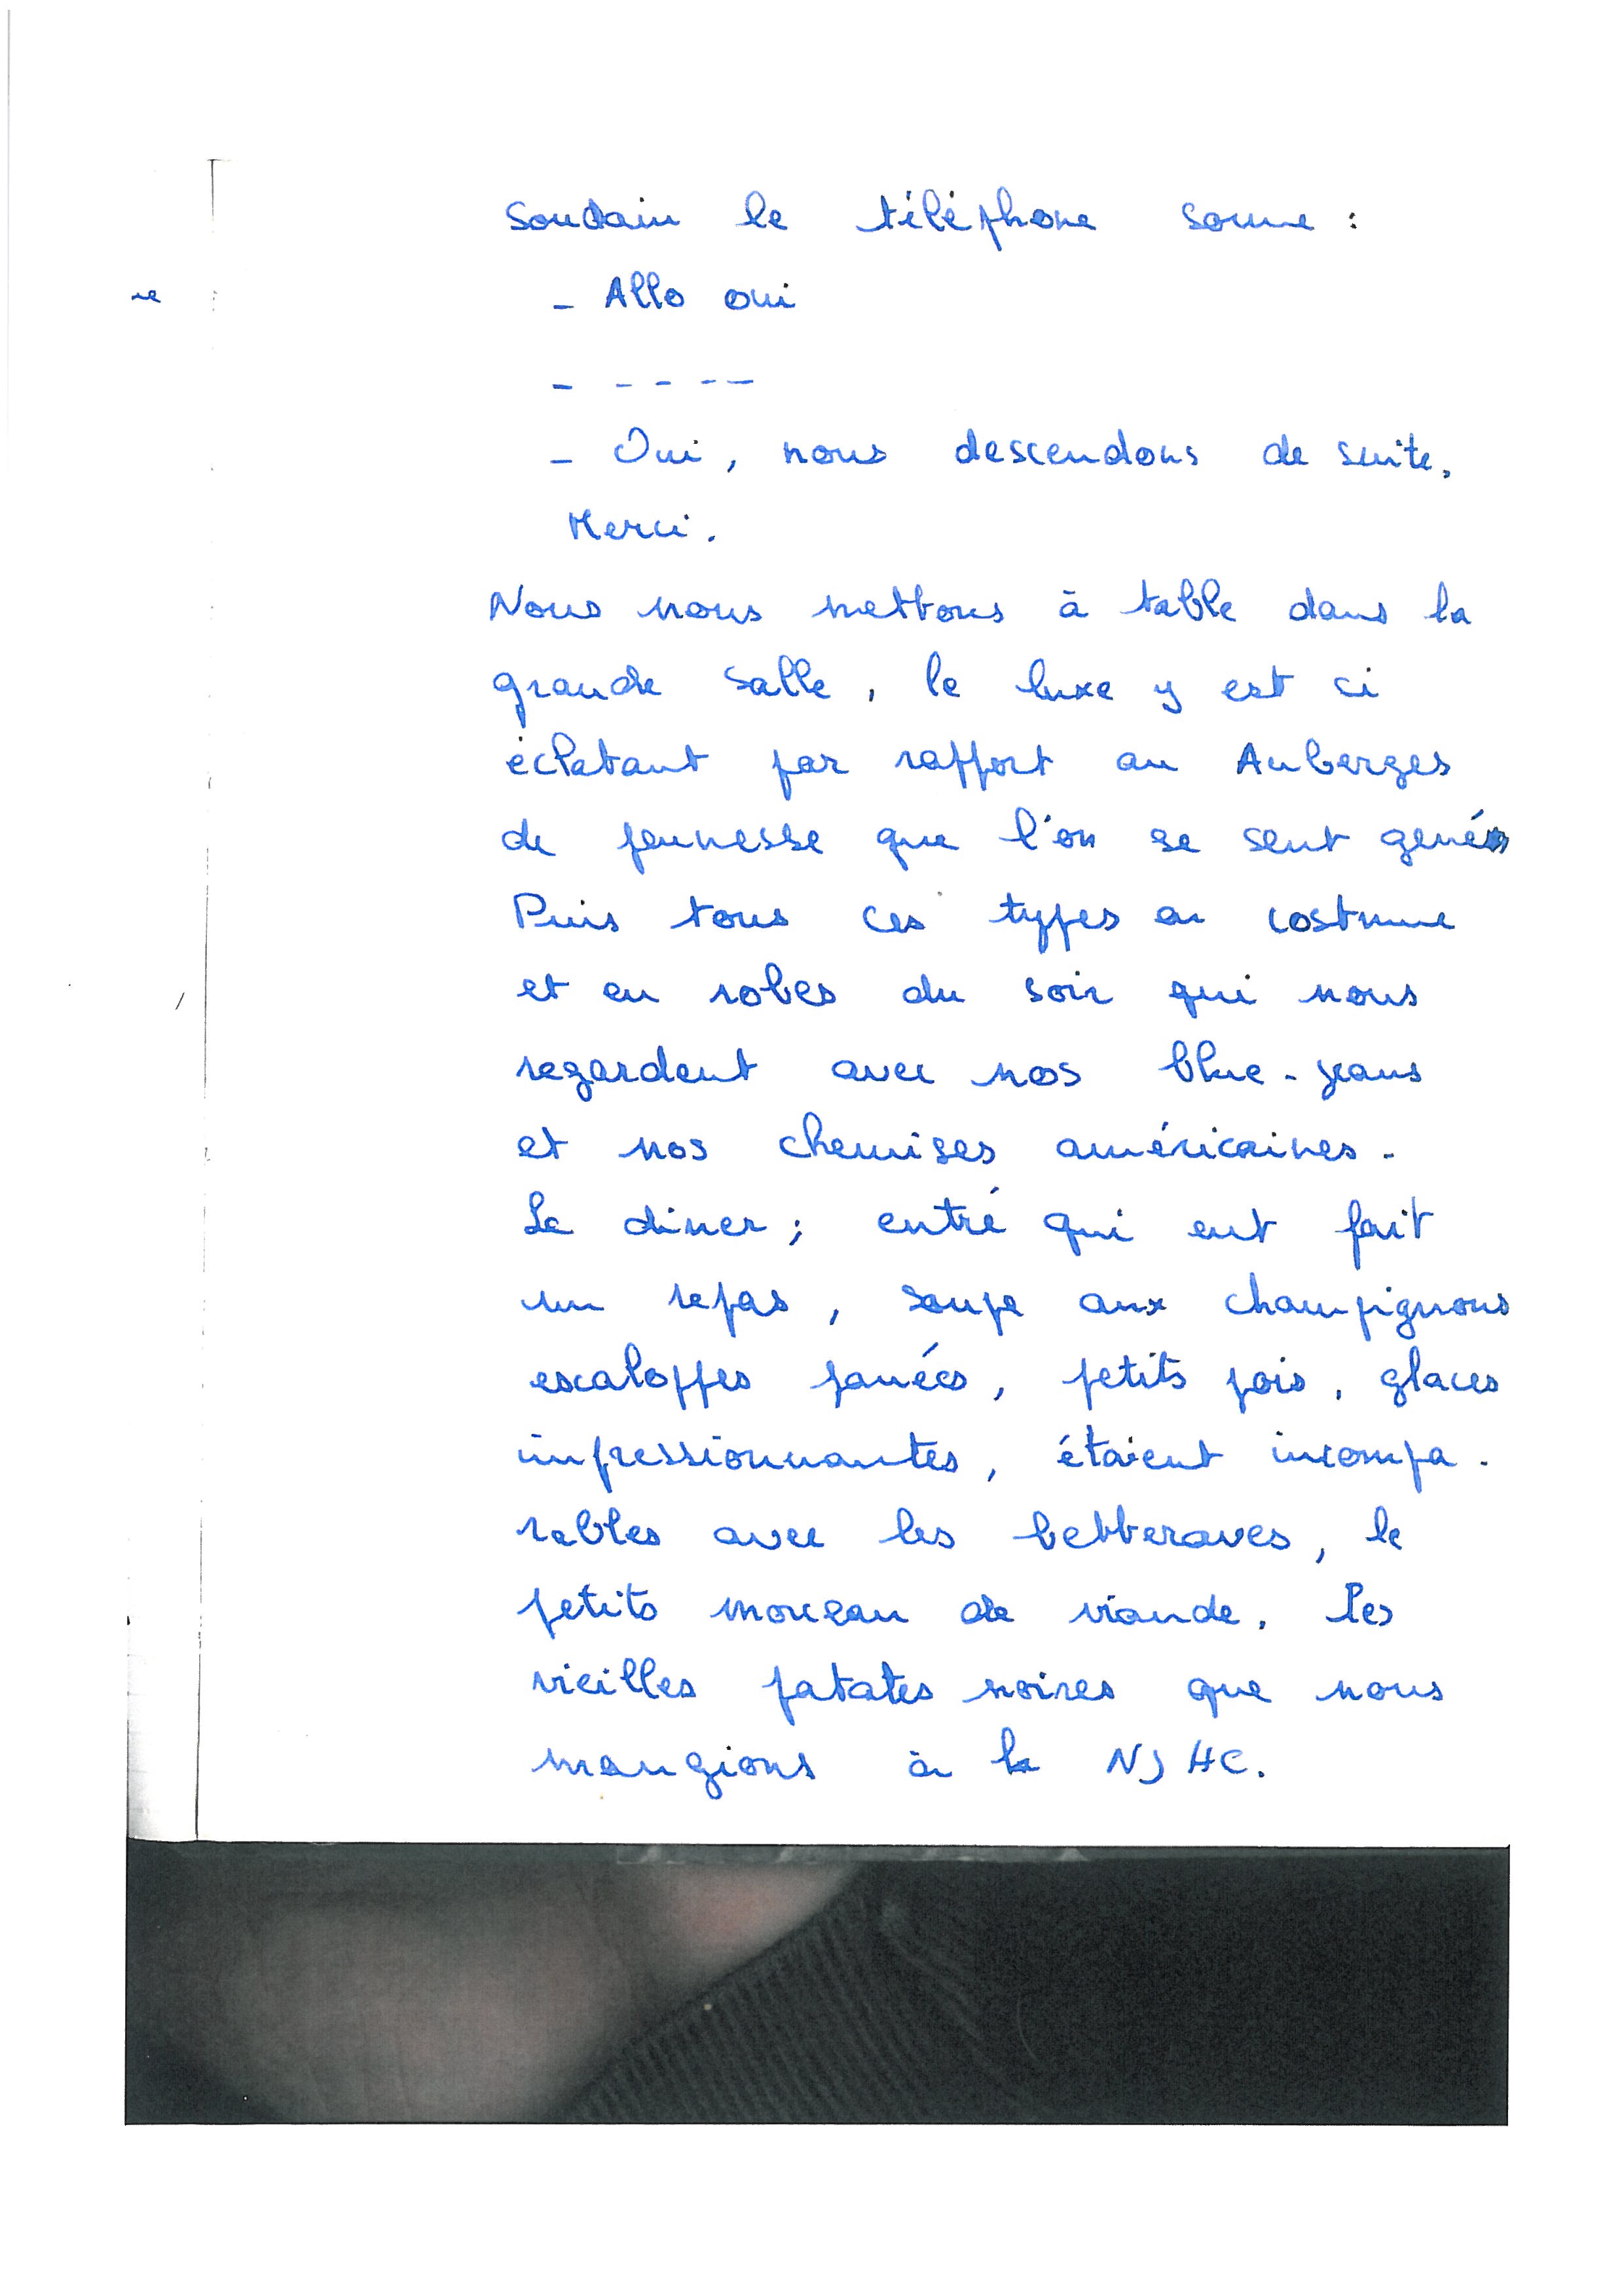 Soudain le téléphone sonne :
- Allo oui
- - - - - -
- Oui, nous descendons de suite.
Merci.
Nous nous mettons à table dans la
grande salle, le luxe y est ci
éclatant par rapport au Auberges
de jeunesse que l'on se sent gené
Puis tous ces types en costume
et en robes du soir qui nous
regardent avec nos blue-jeans
et nos chemises américaines.
Le diner ; entré qui eut fait
un repas, soupe aux champignons
escaloppes panées, petits pois, glaces
impressionnantes, étaient incompa-
rables avec les betteraves, le
petits morceau de viande, les
vieilles patates noires que nous
mangions à la NJHC.